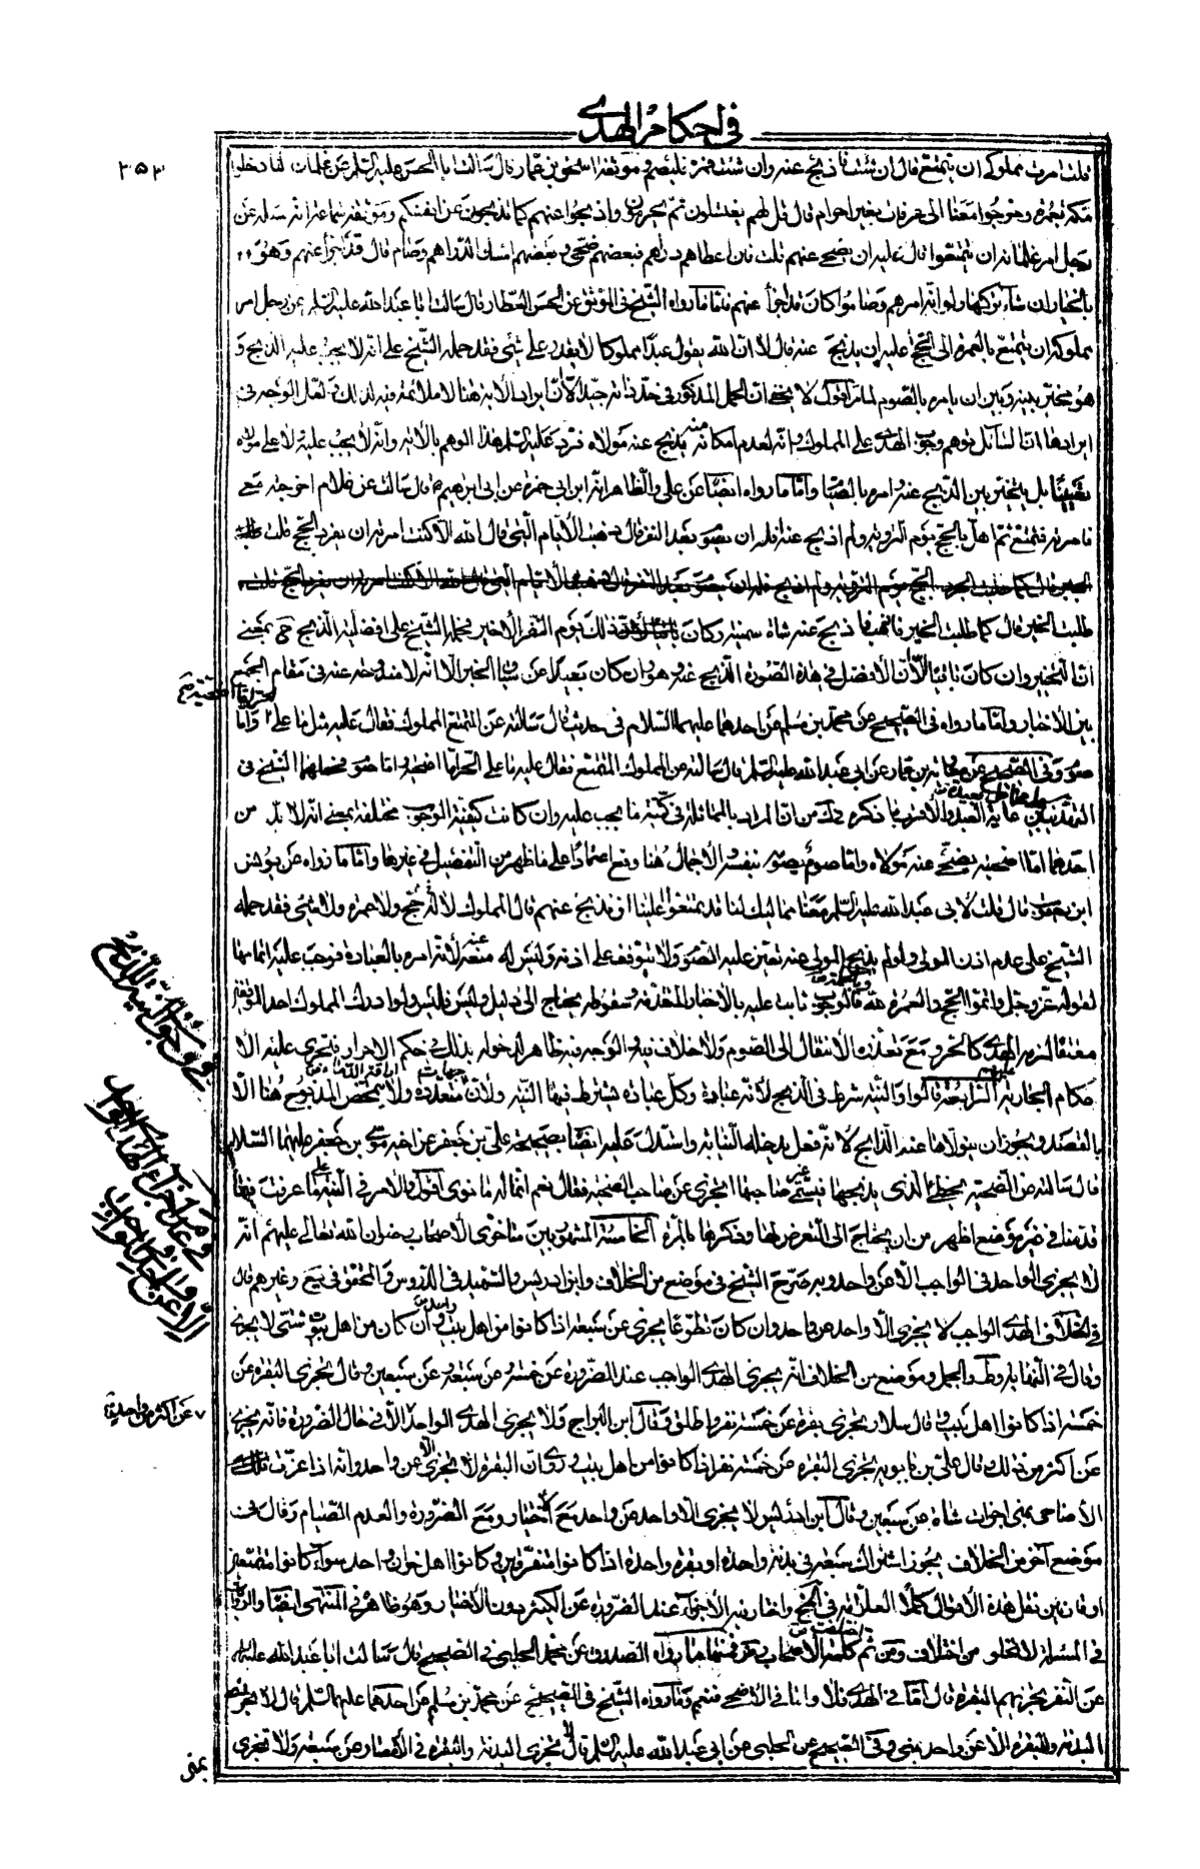 في احكام الهدي
٣٥٣
قلت امرت مملوكي ان يتمتع قال ان شئت فاذبح عنه وان شئت فمره فليصم وموثقة اسحق بن عمار قال سالت ابا الحسن عليه السلم عن غلمان لنا دخلوا
مكة بعمرة وخرجوا معنا الى عرفات بغير احرام قال قل لهم يغتسلون ثم يحرمون واذبحوا عنهم كما تذبحون عن انفسكم وموثقة سماعة انه سئله عن
رجل امر غلمانه ان يتمتعوا قال عليه ان يضحي عنهم قلت فان اعطاهم دراهم فبعضهم ضحى وبعضهم امسك الدراهم وصام قال قد اجزأ عنهم وهو
بالخيار ان شاء تركها ولو انه امرهم وصاموا كان قد اجزأ عنهم فاما ما رواه الشيخ في الموثق عن الحسن العطار قال سالت ابا عبد الله عليه السلم عن رجل امر
مملوكه ان يتمتع بالعمرة الى الحج اعليه ان يذبح عنه قال لا ان الله يقول عبدا مملوكا لا يقدر على شئ فقد حمله الشيخ على انه لا يجب عليه الذبح و
هو مخير بينه وبين ان يامره بالصوم لما مر اقول لا يخفى ان الحمل المذكور في حد ذاته جيد الا ان ايراد الاية هنا لا ملائمة فيه لذلك لعل الوجه في
ايرادها ان السائل توهم وجوب الهدي على المملوك وانه لعدم امكانه منه يذبح عنه مولاه فرد عليه السلم هذا الوهم بالاية وانه لا يجب عليه لا على مولاه
تعيينا بل يتخير بين الذبح عنه وامره بالصيام واما ما رواه ايضا عن علي والظاهر انه ابن ابي حمزة عن ابي ابراهيم ع قال سالته عن غلام اخرجته معي
فامرته فتمتع ثم اهل بالحج يوم التروية ولم اذبح عنه افله ان يصوم بعد النفر قال ذهبت الايام التي قال الله الا كنت امرته ان يفرد الحج قلت
طلبت الخير قال كما طلبت الخير فاذهب فاذبح عنه شاة سمينة وكان ذلك يوم النفر الاخير فحمله الشيخ على افضلية الذبح ح بمعنى
ان التخيير وان كان باقيا الا ان الافضل في هذه الصورة الذبح عنه وهو وان كان بعيدا عن سياق الخبر الا انه لا مندوحة عنه في مقام الجمع
بين الاخبار واما ما رواه في الصحيح عن محمد بن مسلم عن احدهما عليهما السلام في حديث قال سالته عن المتمتع المملوك فقال عليه مثل ما على الحر اما اضحية واما
صوم وفي الصحيح عن عن ابي عبد الله عليه السلم قال سالته عن المملوك المتمتع فقال عليه ما على الحر اما اضحية واما صوم فحملهما الشيخ في
التهذيبين غاية البعد والاقرب ما ذكره من ان المراد بالمماثلة في كمية ما يجب عليه وان كانت كيفية الوجوب مختلفة بمعنى انه لا بد من
احدهما اما اضحية يضحي عنه مولاه واما صوم يصوم بنفسه والاجمال هنا وقع اعتمادا على ما ظهر من التفصيل في غيرها واما ما رواه عن يونس
ابن يعقوب قال قلت لابي عبد الله عليه السلم معنا مماليك لنا قد تمتعوا علينا ان نذبح عنهم قال المملوك لا حج له ولا عمرة ولا شئ فقد حمله
الشيخ على عدم اذن المولى ولو لم يذبح المولى عنه تعين عليه الصوم ولا يتوقف على اذنه وليس له منعه عنه لانه امره بالعبادة فوجب عليه اتمامها
لقوله عز وجل واتموا الحج والعمرة لله فالوجوب ثابت عليه بالاخبار المتقدمة وسقوطه يحتاج الى دليل وليس فليس ولو ادرك المملوك احد الموقفين
معتقا لزمه الهدي كالحر ومع تعذره الانتقال الى الصوم ولا خلاف فيه والوجه فيه ظاهر لدخوله بذلك في حكم الاحرار فتجري عليه الا
حكام الجارية عليهم الرابعة قالوا والنية شرط في الذبح لانه عبادة وكل عبادة يشترط فيها النية ولان جهات اراقة الدماء متعددة ولا يتخصص المذبوح هنا الا
بالقصد ويجوز ان يتولاها عنه الذابح لانه فعل يدخله النيابة واستدل عليه ايضا بصحيحة علي بن جعفر عن اخيه موسى بن جعفر عليهما السلام
قال سالته عن الضحية يخطئ الذي يذبحها فيسمي غير صاحبها اتجزي عن صاحب الضحية فقال نعم انما له ما نوى اقول والامر في النية على ما عرفت فيما
قدمنا في غير موضع اظهر من ان يحتاج الى التعرض لها وذكرها بالمرة الخامسة المشهور بين متاخري الاصحاب رضوان الله تعالى عليهم انه
لا يجزي الواحد في الواجب الا عن واحد وبه صرح الشيخ في موضع من الخلاف وابن ادريس والشهيد في الدروس والمحقق في يع وغيرهم قال
في الخلاف الهدي الواجب لا يجزي الا واحد عن واحد وان كان تطوعا يجزي عن سبعة اذا كانوا من اهل بيت واحد وان كان من اهل بيوت شتى لا يجزي
وقال في النهاية وط والجمل وموضع من الخلاف انه يجزي الهدي الواجب عند الضرورة عن خمسة وعن سبعة وعن سبعين وقال تجزي البقرة عن
خمسة اذا كانوا اهل بيت وقال سلار وتجزي بقرة عن خمسة نفر واطلق وقال ابن البراج ولا يجزي الهدي الواحد الا في حال الضرورة فانه يجزي
عن اكثر من ذلك قال علي بن بابويه يجزي البقرة عن خمسة نفر اذا كانوا من اهل بيت وروي ان البقرة لا تجزي الا عن واحد وانه اذا عزت
الاضاحي بمنى اجزأت شاة عن سبعين وقال ابن ادريس لا يجزي الا واحد عن واحد مع الاختيار ومع الضرورة والعدم الصيام وقال في
موضع آخر من الخلاف يجوز اشتراك سبعة في بدنة واحدة او بقرة واحدة اذا كانوا متفرقين او كانوا اهل خوان واحد سواء كانوا متمتعين
او قارنين نقل هذه الاقوال كلها العلامة في لف واختار فيه الاجزاء عند الضرورة عن الكثير دون الاختيار وهو ظاهره في المنتهى ايضا والروايات
في المسئلة لا تخلو من اختلاف ومن ثم اختلفت كلمة الاصحاب فمنها ما رواه الصدوق عن محمد الحلبي في الصحيح قال سالت ابا عبد الله عليه السلم
عن النفر يجزيهم البقرة قال اما في الهدي فلا واما في الاضحى فنعم وما رواه الشيخ في الصحيح عن محمد بن مسلم عن احدهما عليهما السلم قال لا تجوز
البدنة والبقرة الا عن واحد بمنى وفي الصحيح عن الحلبي عن ابي عبد الله عليه السلم قال تجزي البدنة والبقرة في الامصار عن سبعة ولا تجزي
بمنى
في وجوب النية للذبح
في عدم اجزاء الهدي الواجب
الا عن واحد
عن اكثر من واحد